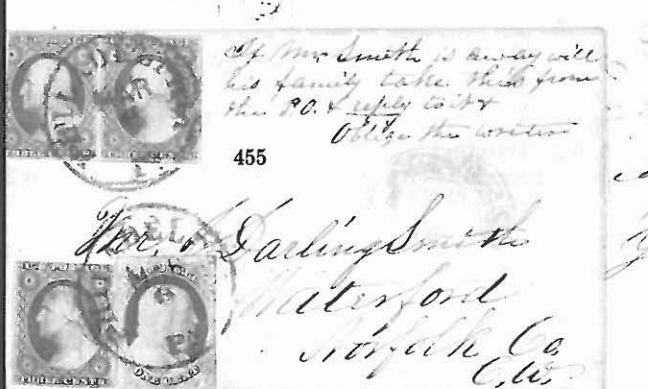 If Mr Smith is away will
his family take this from
the P.O. & reply to it &
Oblige the writer
455
Mr. Darling Smith
Waterford
Norfolk Co
C.W.
PA
ONE CENT